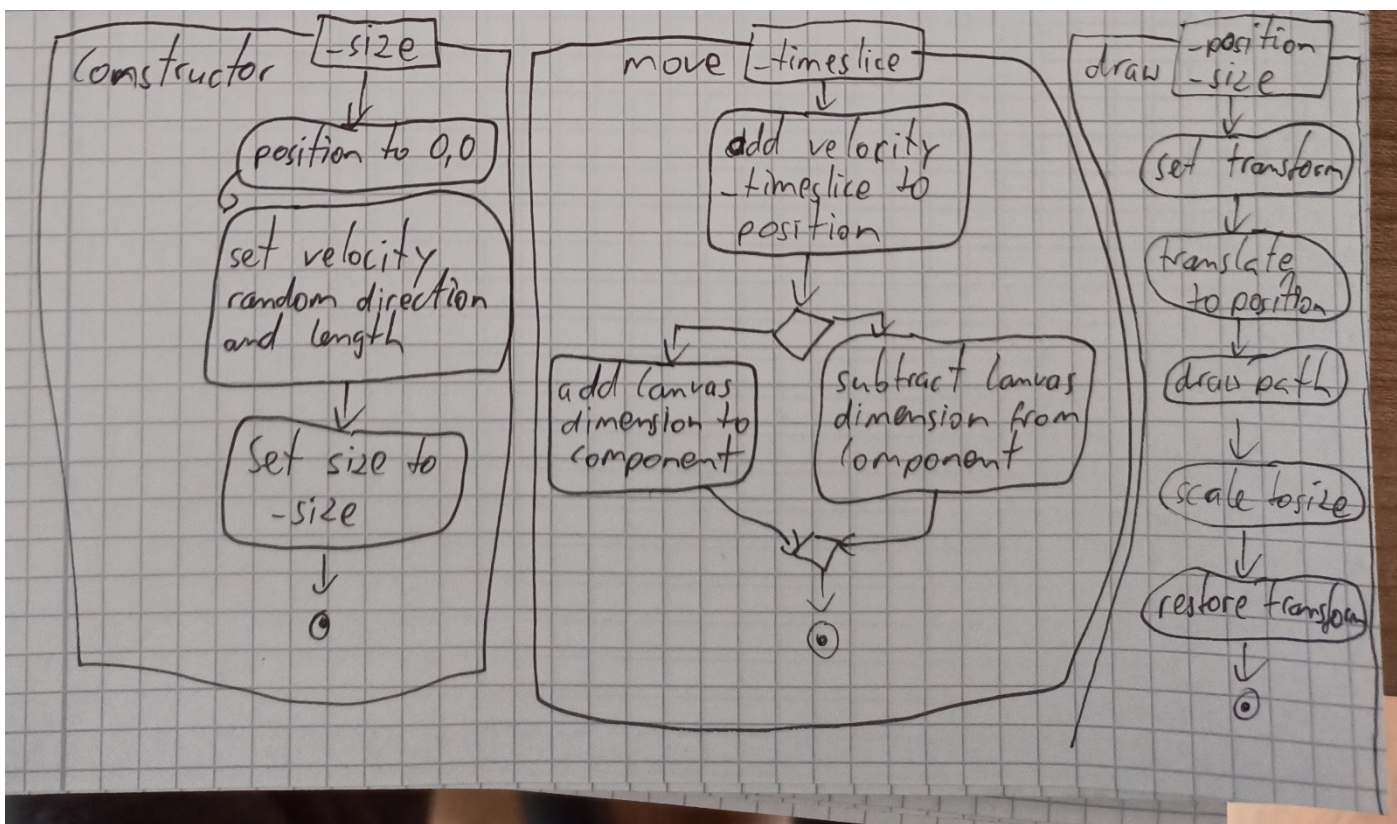 Constructor
-size
position to 0,0
set velocity
random direction
and length
Set size to
-size
move
-timeslice
add velocity
-timeslice to
position
add Canvas
dimension to
component
subtract Canvas
dimension from
Component
draw
-position
-size
set transform
translate
to position
draw path
scale to size
restore transform